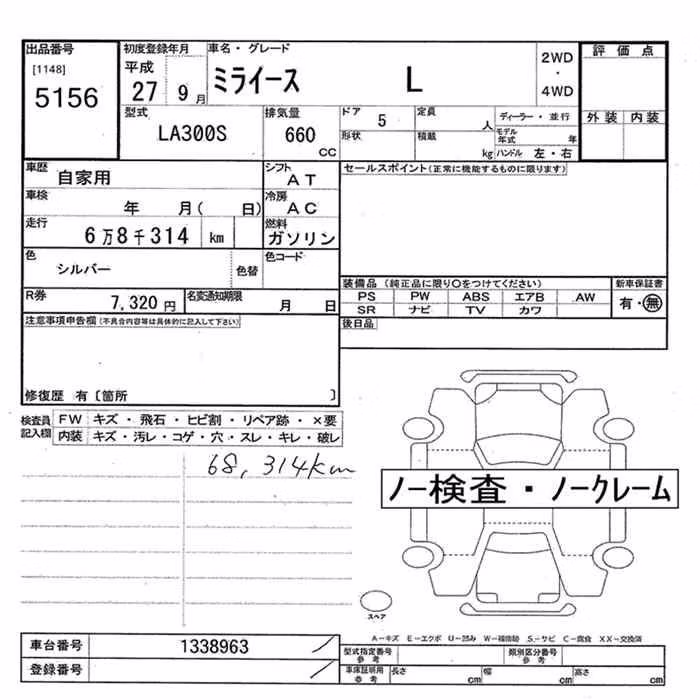 出品番号
[1148]
5156
初度登録年月
平成
27 9月
車名・グレード
ミライース L
2WD
・
4WD
評価点
外装 内装
型式
LA300S
排気量
660
CC
ドア 5
形状
定員 人
積載 kg
ディーラー・並行
モデル年式 年
ハンドル 左・右
車歴
自家用
シフト
AT
セールスポイント(正常に機能するものに限ります)
車検
年 月( 日)
冷房
AC
走行
6万8千314 km
燃料
ガソリン
色
シルバー
色替
色コード
R券
7,320円
名変通知期限
月 日
装備品(純正品に限り〇をつけてください)
PS PW ABS エアB AW
SR ナビ TV カワ
新車保証書
有・無
後日品
注意事項申告欄(不具合内容等は具体的に記入して下さい)
修復歴 有〔箇所 〕
検査員記入欄
FW キズ・飛石・ヒビ割・リペア跡・×要
内装 キズ・汚レ・コゲ・穴・スレ・キレ・破レ
68,314km
ノー検査・ノークレーム
スペア
A-キズ E-エクボ U-凹み W-補修跡 S-サビ C-腐食 XX-交換済
車台番号 1338963
登録番号
型式指定番号
参考
類別区分番号
参考
車庫証明用
参考
長さ cm 幅 cm 高さ cm